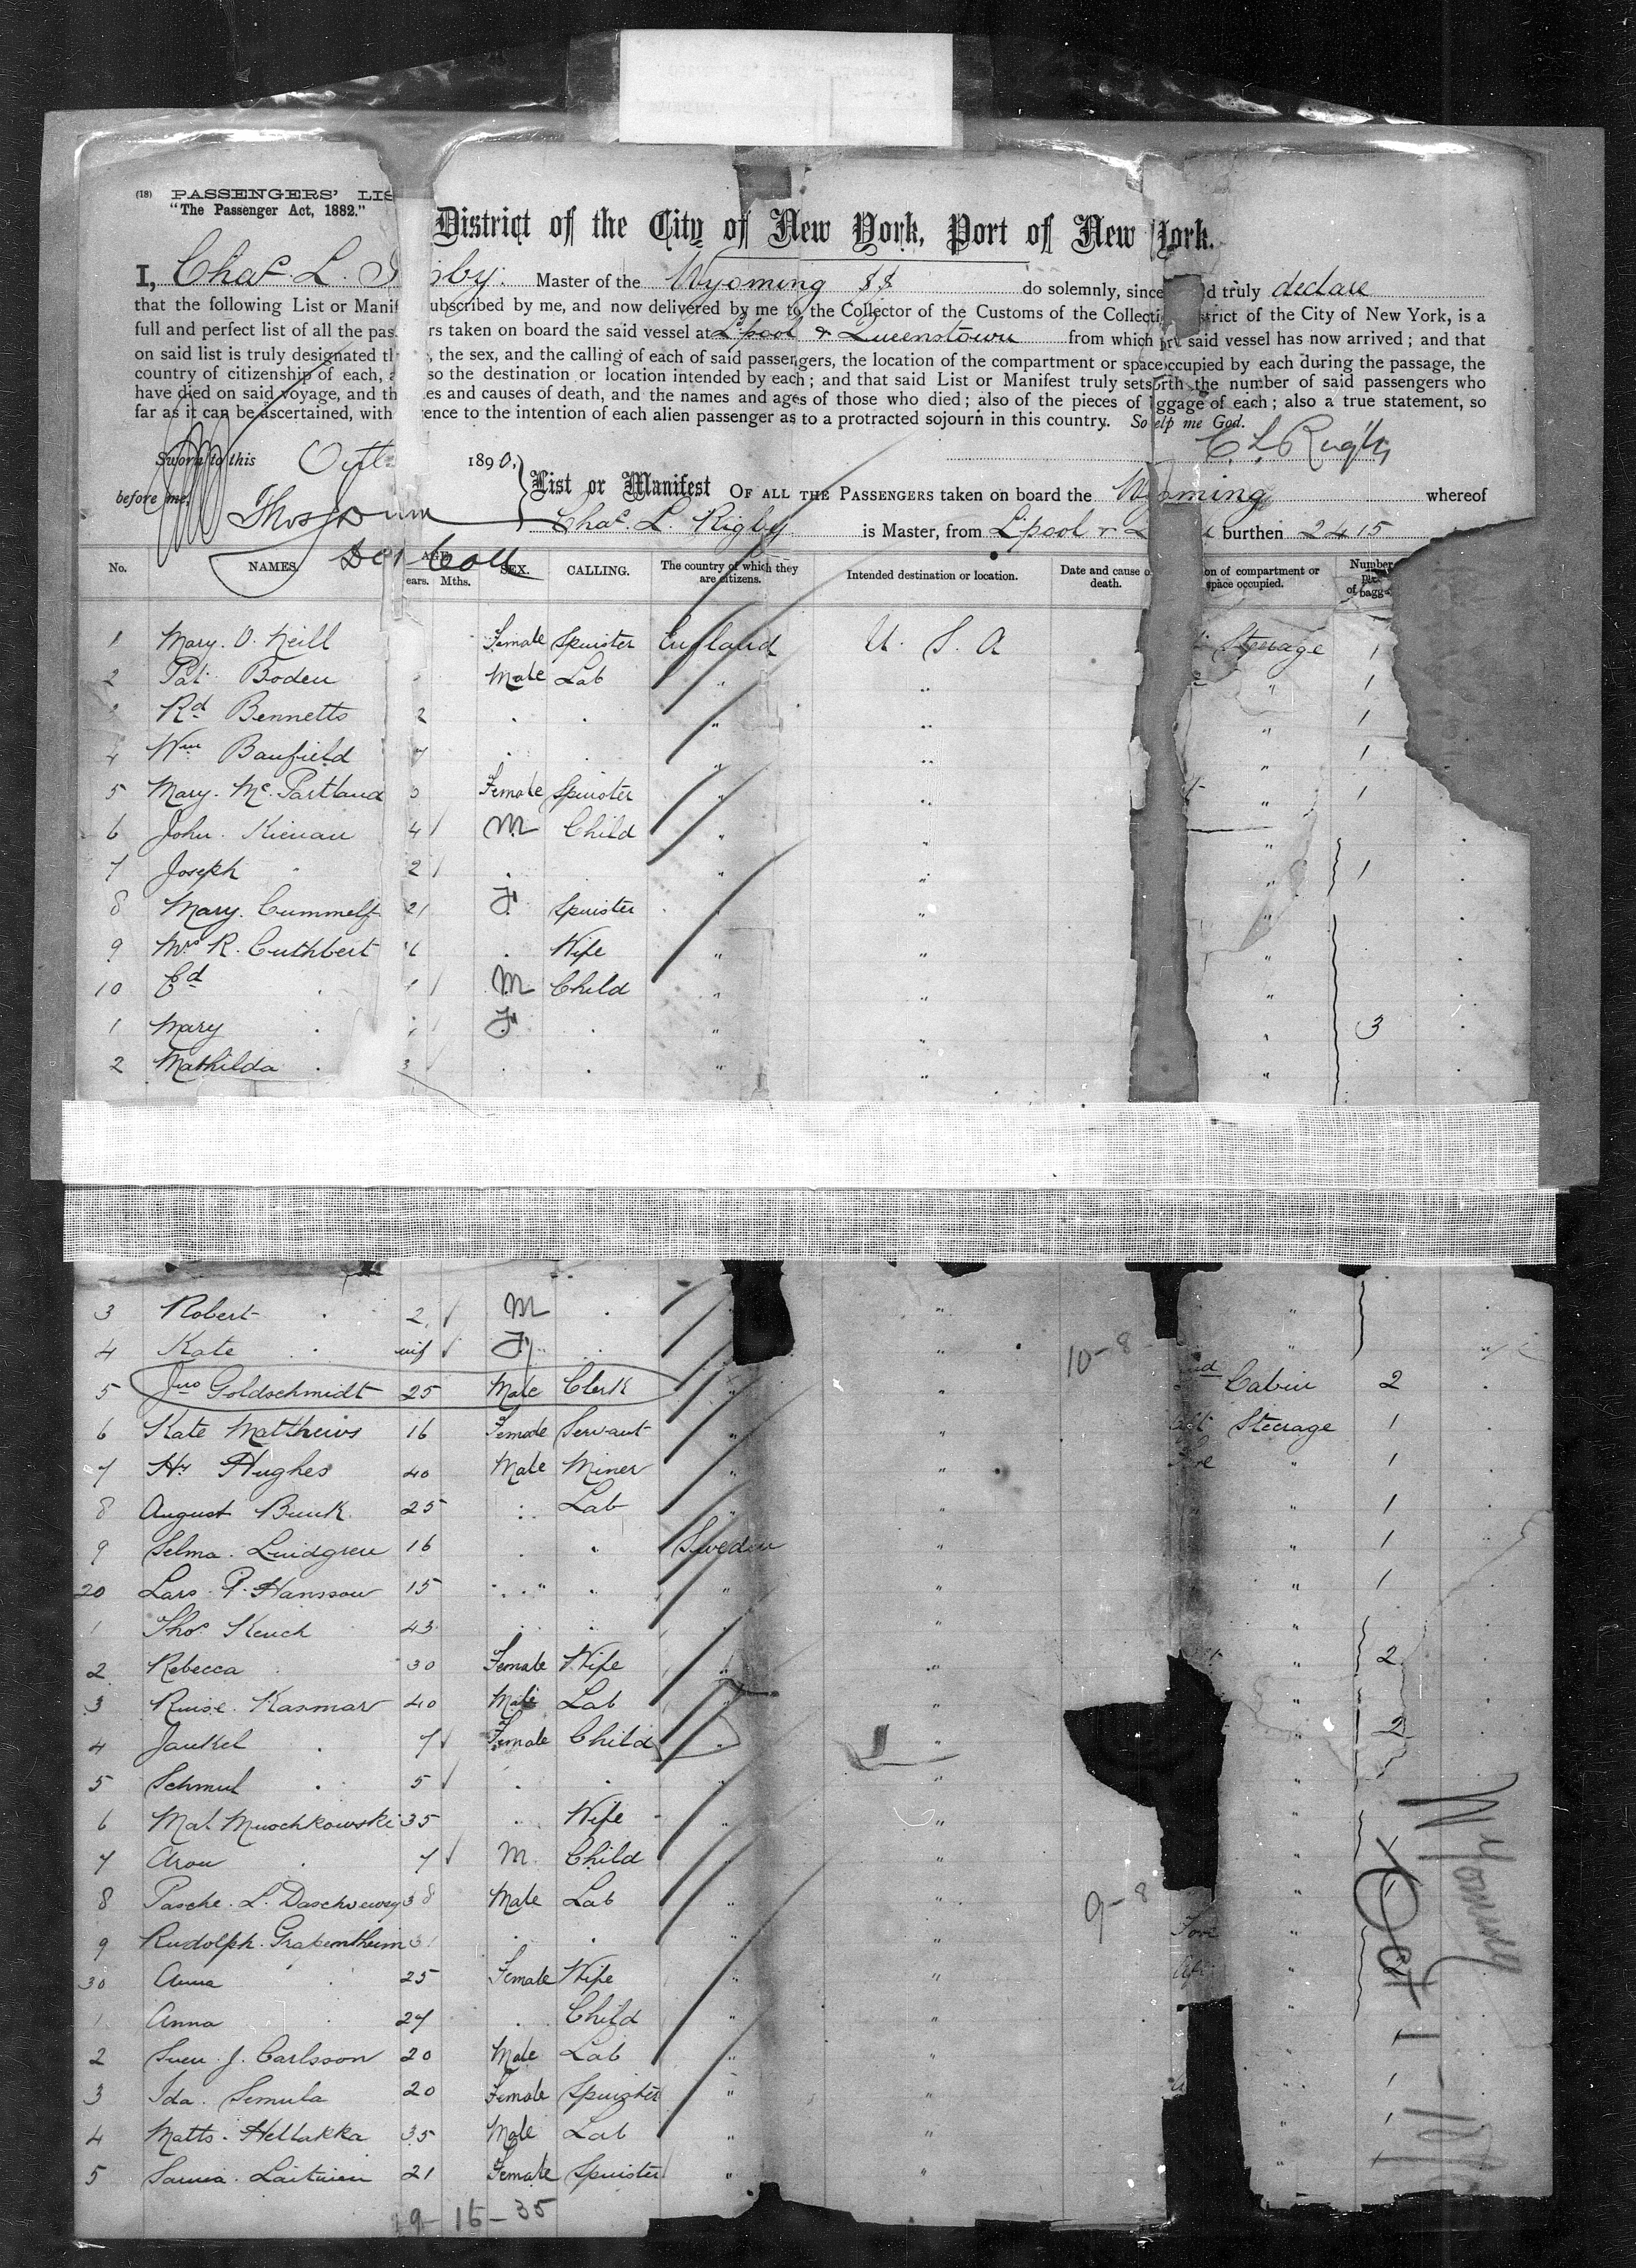 (18) PASSENGERS' LIS
"The Passenger Act, 1882."
District of the City of New York, Port of New York.
I, Chas. L. Rigby. Master of the Wyoming SS do solemnly, since d truly declare
that the following List or Manif ubscribed by me, and now delivered by me to the Collector of the Customs of the Collecti strict of the City of New York, is a
full and perfect list of all the pas rs taken on board the said vessel at L'pool & Queenstown from which said vessel has now arrived; and that
on said list is truly designated th , the sex, and the calling of each of said passengers, the location of the compartment or space occupied by each during the passage, the
country of citizenship of each, a so the destination or location intended by each; and that said List or Manifest truly sets forth the number of said passengers who
have died on said voyage, and th es and causes of death, and the names and ages of those who died; also of the pieces of ggage of each; also a true statement, so
far as it can be ascertained, with rence to the intention of each alien passenger as to a protracted sojourn in this country. So elp me God.
Sworn to this 1890,
before me.
List or Manifest OF ALL THE PASSENGERS taken on board the Wyoming whereof
Chas. L. Rigby is Master, from L'pool & burthen 2415
Coll
No. NAMES. AGE. ears. Mths. SEX. CALLING. The country of which they are citizens. Intended destination or location. Date and cause o death. on of compartment or space occupied. Number of bagga
1 Mary. O. Neill Female Spinster England U. S. A Steerage 1
2 Pat. Boden Male Lab " " " 1
3 Rd Bennetts 2 . . " " " 1
4 Wm Banfield 7 . " " " 1
5 Mary. Mc. Partland Female Spinster " " " 1
6 John. Kienan 4 M Child " " "
7 Joseph " 2 . " " " 1
8 Mary. 21 F Spinster . " "
9 Mrs R. Cuthbert 6 . Wife " " "
10 Ed . M Child " " "
1 Mary . F . " " " 3
2 Mathilda . 3 . . " " "
3 Robert . 2 M . " "
4 Kate . inf F " "
5 Jno Goldschmidt 25 Male Clerk " " Cabin 2
6 Kate Matthews 16 Female Servant " " Steerage 1
7 Hy Hughes 40 Male Miner " " " 1
8 August Bunk. 25 . Lab " " 1
9 Selma. Lindgren 16 . " Sweden " 1
20 Lars. P. Hansson 15 " " " " " 1
1 Thos. Keuch 43
2 Rebecca . 30 Female Wife " " " 2
3 Kasmar 40 Male Lab " "
4 Jankel . 7 Female Child " " 2
5 Schmul . 5 . . " "
6 Mal. Muschkowski 35 . Wife " "
7 Aron . 7 M. Child "
8 38 Male Lab " " "
9 Rudolph. 31 . . " " "
30 Anna . 25 Female Wife " "
1 Anna . 24 . Child " "
2 Sven. J. Carlsson 20 Male Lab " "
3 Ida. Semula 20 Female Spinster " " 1
4 Matts. Hellakka 35 Male Lab " " "
5 21 Female Spinster " " "
10-8
9-8
19-16-35
Wyoming
Oct 1